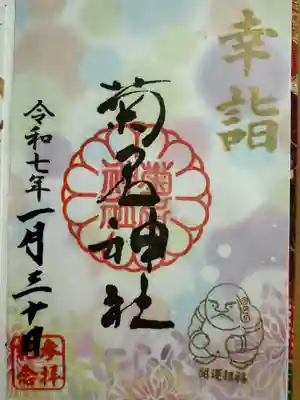 幸詣
菊名神社
令和七年一月三十日
参拝
記念
開運招福